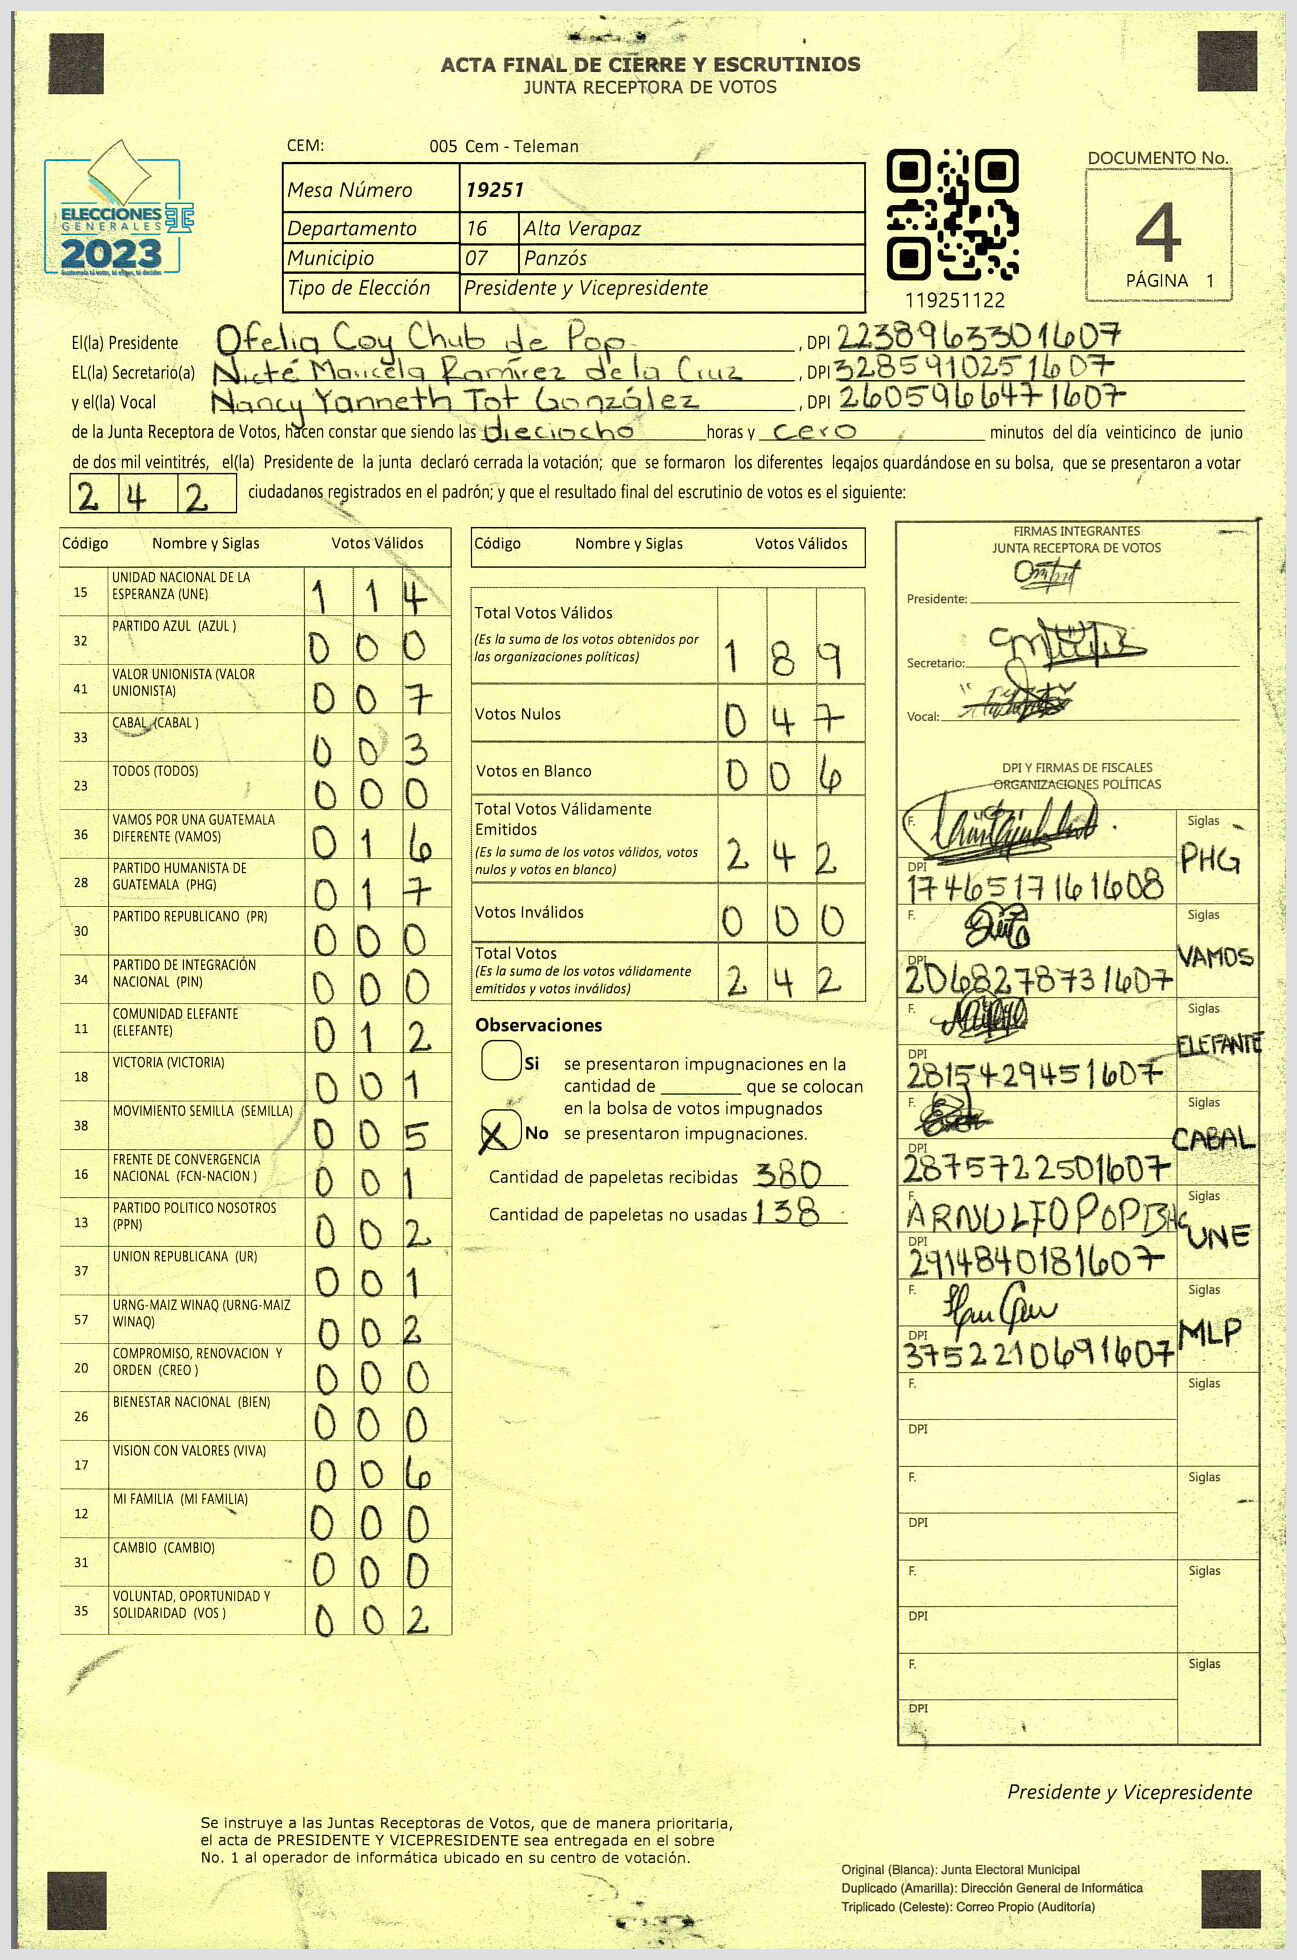 ACTA FINAL DE CIERRE Y ESCRUTINIOS
JUNTA RECEPTORA DE VOTOS
CEM: 005 Cem - Teleman
ELECCIONES
GENERALES
2023
Guatemala tú votas, tú eliges, tú decides
Mesa Número 19251
Departamento 16 Alta Verapaz
Municipio 07 Panzós
Tipo de Elección Presidente y Vicepresidente
119251122
DOCUMENTO No.
4
PÁGINA 1
El(la) Presidente Ofelia Coy Chub de Pop , DPI 2238963301607
EL(la) Secretario(a) Nicté Maricela Ramírez de la Cruz , DPI 3285910251607
y el(la) Vocal Nancy Yanneth Tot González , DPI 2605966471607
de la Junta Receptora de Votos, hacen constar que siendo las dieciocho horas y cero minutos del día veinticinco de junio
de dos mil veintitrés, el(la) Presidente de la junta declaró cerrada la votación; que se formaron los diferentes legajos guardándose en su bolsa, que se presentaron a votar
242 ciudadanos registrados en el padrón; y que el resultado final del escrutinio de votos es el siguiente:
Código Nombre y Siglas Votos Válidos
15 UNIDAD NACIONAL DE LA ESPERANZA (UNE) 114
32 PARTIDO AZUL (AZUL ) 000
41 VALOR UNIONISTA (VALOR UNIONISTA) 007
33 CABAL (CABAL ) 003
23 TODOS (TODOS) 000
36 VAMOS POR UNA GUATEMALA DIFERENTE (VAMOS) 016
28 PARTIDO HUMANISTA DE GUATEMALA (PHG) 017
30 PARTIDO REPUBLICANO (PR) 000
34 PARTIDO DE INTEGRACIÓN NACIONAL (PIN) 000
11 COMUNIDAD ELEFANTE (ELEFANTE) 012
18 VICTORIA (VICTORIA) 001
38 MOVIMIENTO SEMILLA (SEMILLA) 005
16 FRENTE DE CONVERGENCIA NACIONAL (FCN-NACION ) 001
13 PARTIDO POLITICO NOSOTROS (PPN) 002
37 UNION REPUBLICANA (UR) 001
57 URNG-MAIZ WINAQ (URNG-MAIZ WINAQ) 002
20 COMPROMISO, RENOVACION Y ORDEN (CREO ) 000
26 BIENESTAR NACIONAL (BIEN) 000
17 VISION CON VALORES (VIVA) 006
12 MI FAMILIA (MI FAMILIA) 000
31 CAMBIO (CAMBIO) 000
35 VOLUNTAD, OPORTUNIDAD Y SOLIDARIDAD (VOS ) 002
Código Nombre y Siglas Votos Válidos
Total Votos Válidos
(Es la suma de los votos obtenidos por
las organizaciones políticas) 189
Votos Nulos 047
Votos en Blanco 006
Total Votos Válidamente
Emitidos
(Es la suma de los votos válidos, votos
nulos y votos en blanco) 242
Votos Inválidos 000
Total Votos
(Es la suma de los votos válidamente
emitidos y votos inválidos) 242
Observaciones
Si se presentaron impugnaciones en la
cantidad de ________ que se colocan
en la bolsa de votos impugnados
X No se presentaron impugnaciones.
Cantidad de papeletas recibidas 380
Cantidad de papeletas no usadas 138
FIRMAS INTEGRANTES
JUNTA RECEPTORA DE VOTOS
Presidente:
Secretario:
Vocal:
DPI Y FIRMAS DE FISCALES
ORGANIZACIONES POLÍTICAS
F. Siglas PHG
DPI 1746517161608
F. Siglas VAMOS
DPI 2068278731607
F. Siglas ELEFANTE
DPI 2815429451607
F. Siglas CABAL
DPI 2875722501607
F. ARNULFO POP Siglas UNE
DPI 2914840181607
F. Siglas MLP
DPI 3752210691607
F. Siglas
DPI
F. Siglas
DPI
F. Siglas
DPI
F. Siglas
DPI
Presidente y Vicepresidente
Se instruye a las Juntas Receptoras de Votos, que de manera prioritaria,
el acta de PRESIDENTE Y VICEPRESIDENTE sea entregada en el sobre
No. 1 al operador de informática ubicado en su centro de votación.
Original (Blanca): Junta Electoral Municipal
Duplicado (Amarilla): Dirección General de Informática
Triplicado (Celeste): Correo Propio (Auditoría)